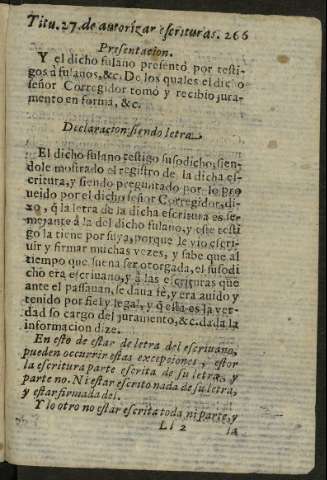 Titu. 27. de autorizar escrituras. 266
Presentacion.
Y el dicho fulano presento por testi-
gos a fulanos, &c. De los quales el dicho
señor Corregidor tomò y recibio jura-
mento en forma, &c.
Declaracion siendo letra
El dicho fulano testigo susodicho, sien-
dole mostrado el registro de la dicha es-
critura, y siendo preguntado por lo pro
ueido por el dicho señor Corregidor, di-
xo, q̃ la letra de la dicha escritura es se-
mejante â la del dicho fulano, y este testi
go la tiene por suya, porque le vio escri-
uir y firmar muchas vezes, y sabe que al
tiempo que suena ser otorgada, el susodi
cho era escriuano, y à las escrituras que
ante el passauan, se daua fè, y era auido y
tenido por fiel y legal, y q̃ esta es la ver-
dad so cargo del juramento, &c. dada la
informacion dize.
En esto de estar de letra del escriuano,
pueden occurrir estas excepciones, estar
la escritura parte escrita de su letra, y
parte no. Ni estar escrito nada de su letra,
y estar firmada del.
Y lo otro no estar escrita toda ni parte, y
Ll 2 la